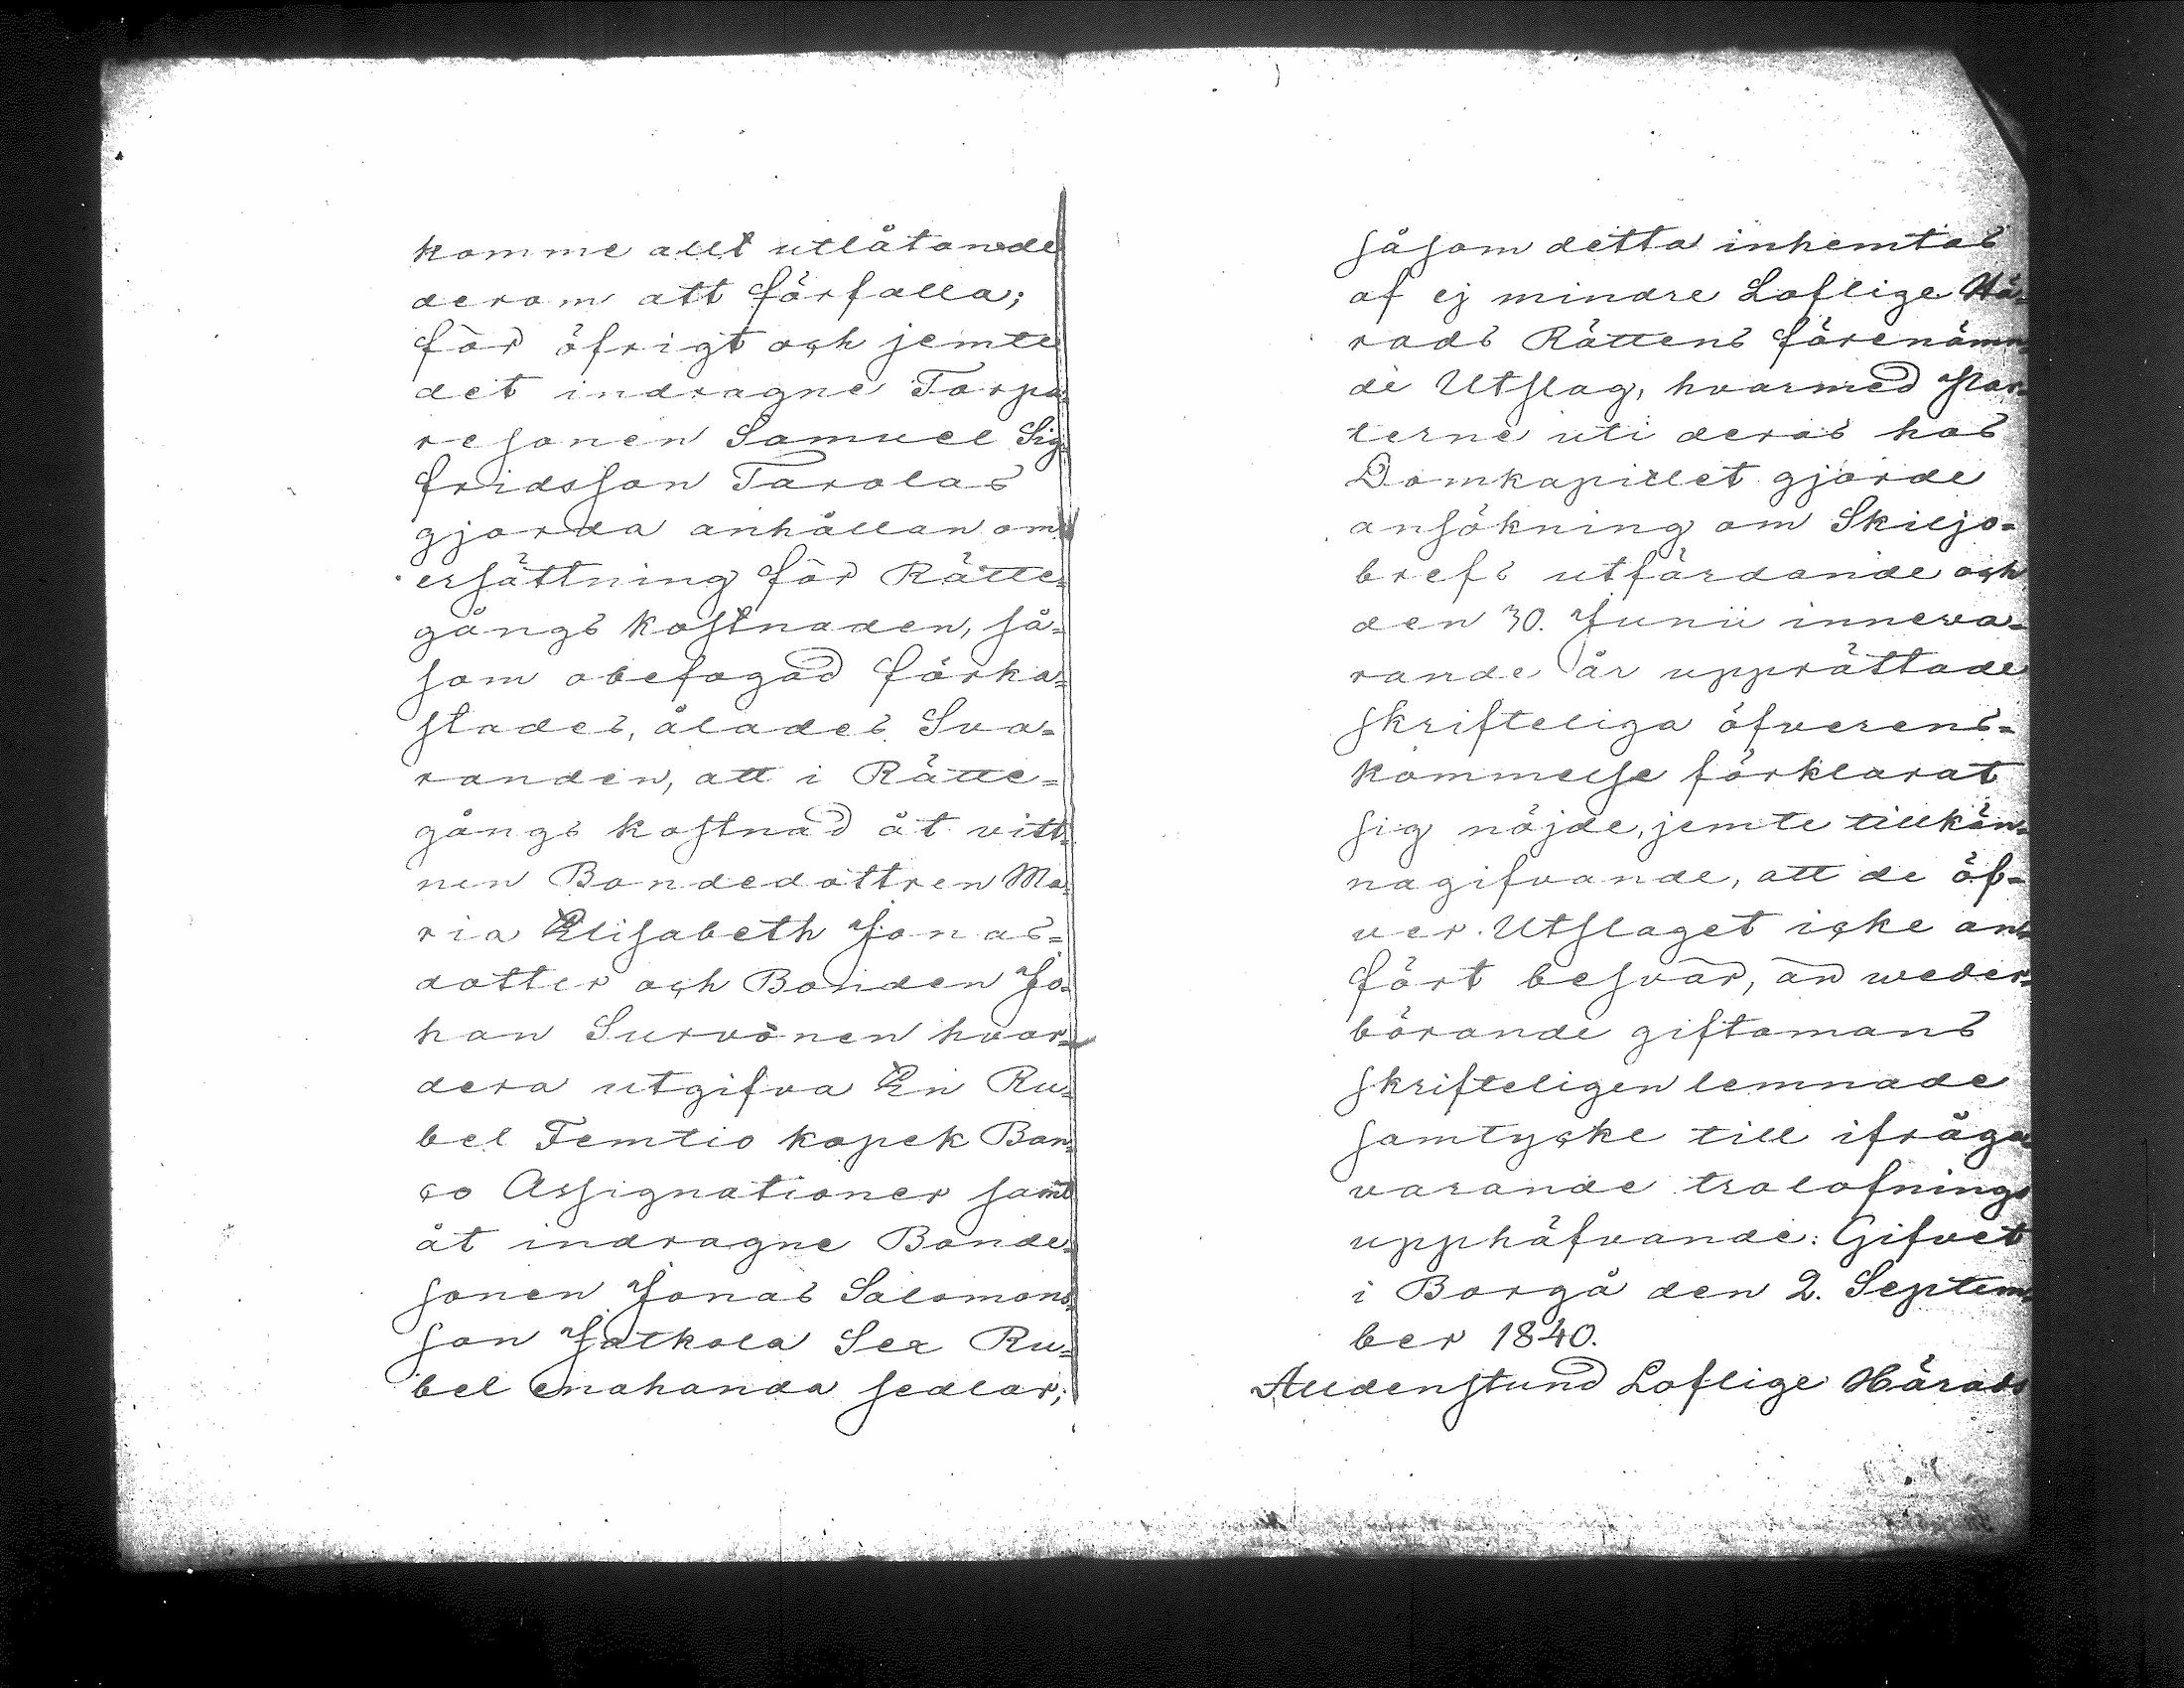 komme allt utlåtande
derom att förfalla;
för öfrigt och jemte
det indragne Torpa-
resonen Samuel Sig-
fridsson Tarolas
gjorda anhållan om
ersättning för Rätte-
gångs kostnaden, så-
som obefogad förka-
stades, ålades Sva-
randen, att i Rätte-
gångs kostnad åt vitt-
nen Bondedottren Ma-
ria Elisabeth Jonas-
dotter och Bonden Jo-
han Survonen hvar-
dera utgifva En Ru-
bel Femtio kopek Ban-
co Assignationer samt
åt indragne Bonde-
sonen Jonas Salomons-
son Jatkola Sex Ru-
bel enahanda sedlar;
såsom detta inhemtas
af ej mindre Loflige Hä-
rads Rättens förenämn-
de Utslag, hvarmed Par-
terne uti deras hos
Domkapitlet gjorde
ansökning om Skiljo-
brefs utfärdande och
den 30. Junii inneva-
rande år upprättade
skrifteliga öfverens-
kommelse förklarat
sig nöjde, jemte tillkän-
nagifvande, att de öf-
ver Utslaget icke an-
fört besvär, än weder-
börande giftomans
skrifteligen lemnade
samtycke till ifråga
varande trolofnings
upphäfvande: Gifvet
i Borgå den 2. Septem-
ber 1840.
Alldenstund Loflige Härads